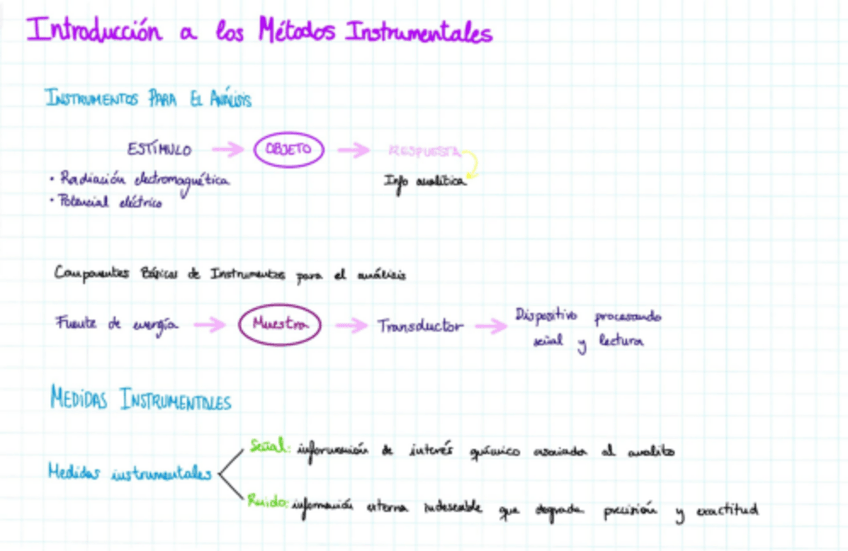 Introducción a los Métodos Instrumentales
INSTRUMENTOS PARA EL ANÁLISIS
ESTÍMULO → OBJETO → RESPUESTA
• Radiación electromagnética
Info analítica
• Potencial eléctrico
Componentes Básicos de Instrumentos para el análisis
Fuente de energía → Muestra → Transductor → Dispositivo procesando
señal y lectura
MEDIDAS INSTRUMENTALES
Señal: información de interés químico asociada al analito
Medidas instrumentales
Ruido: información externa indeseable que degrada precisión y exactitud